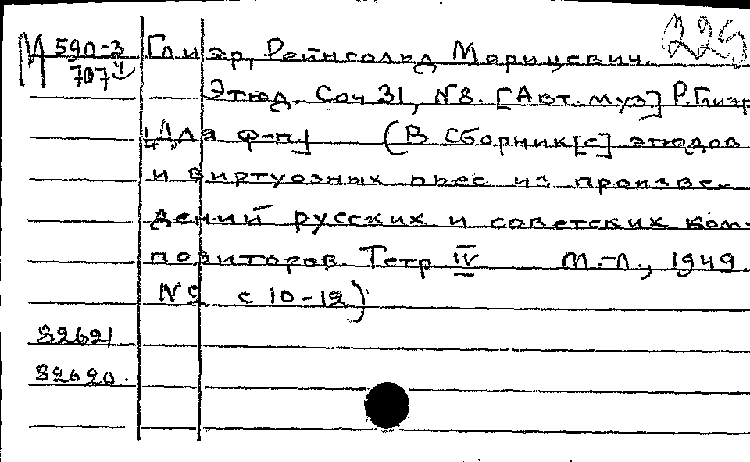 225
М 590-3 Глиэр, Рейнгольд Морицевич.
707
Этюд. Соч 31, N8. [Авт. муз] Р. Глиэр
[Для ф-п] (В Сборник[е] этюдов
и виртуозных пьес из произве-
дений русских и советских ком-
позиторов. Тетр IV М.-Л., 1949.
с 10-12)
32621
32620.